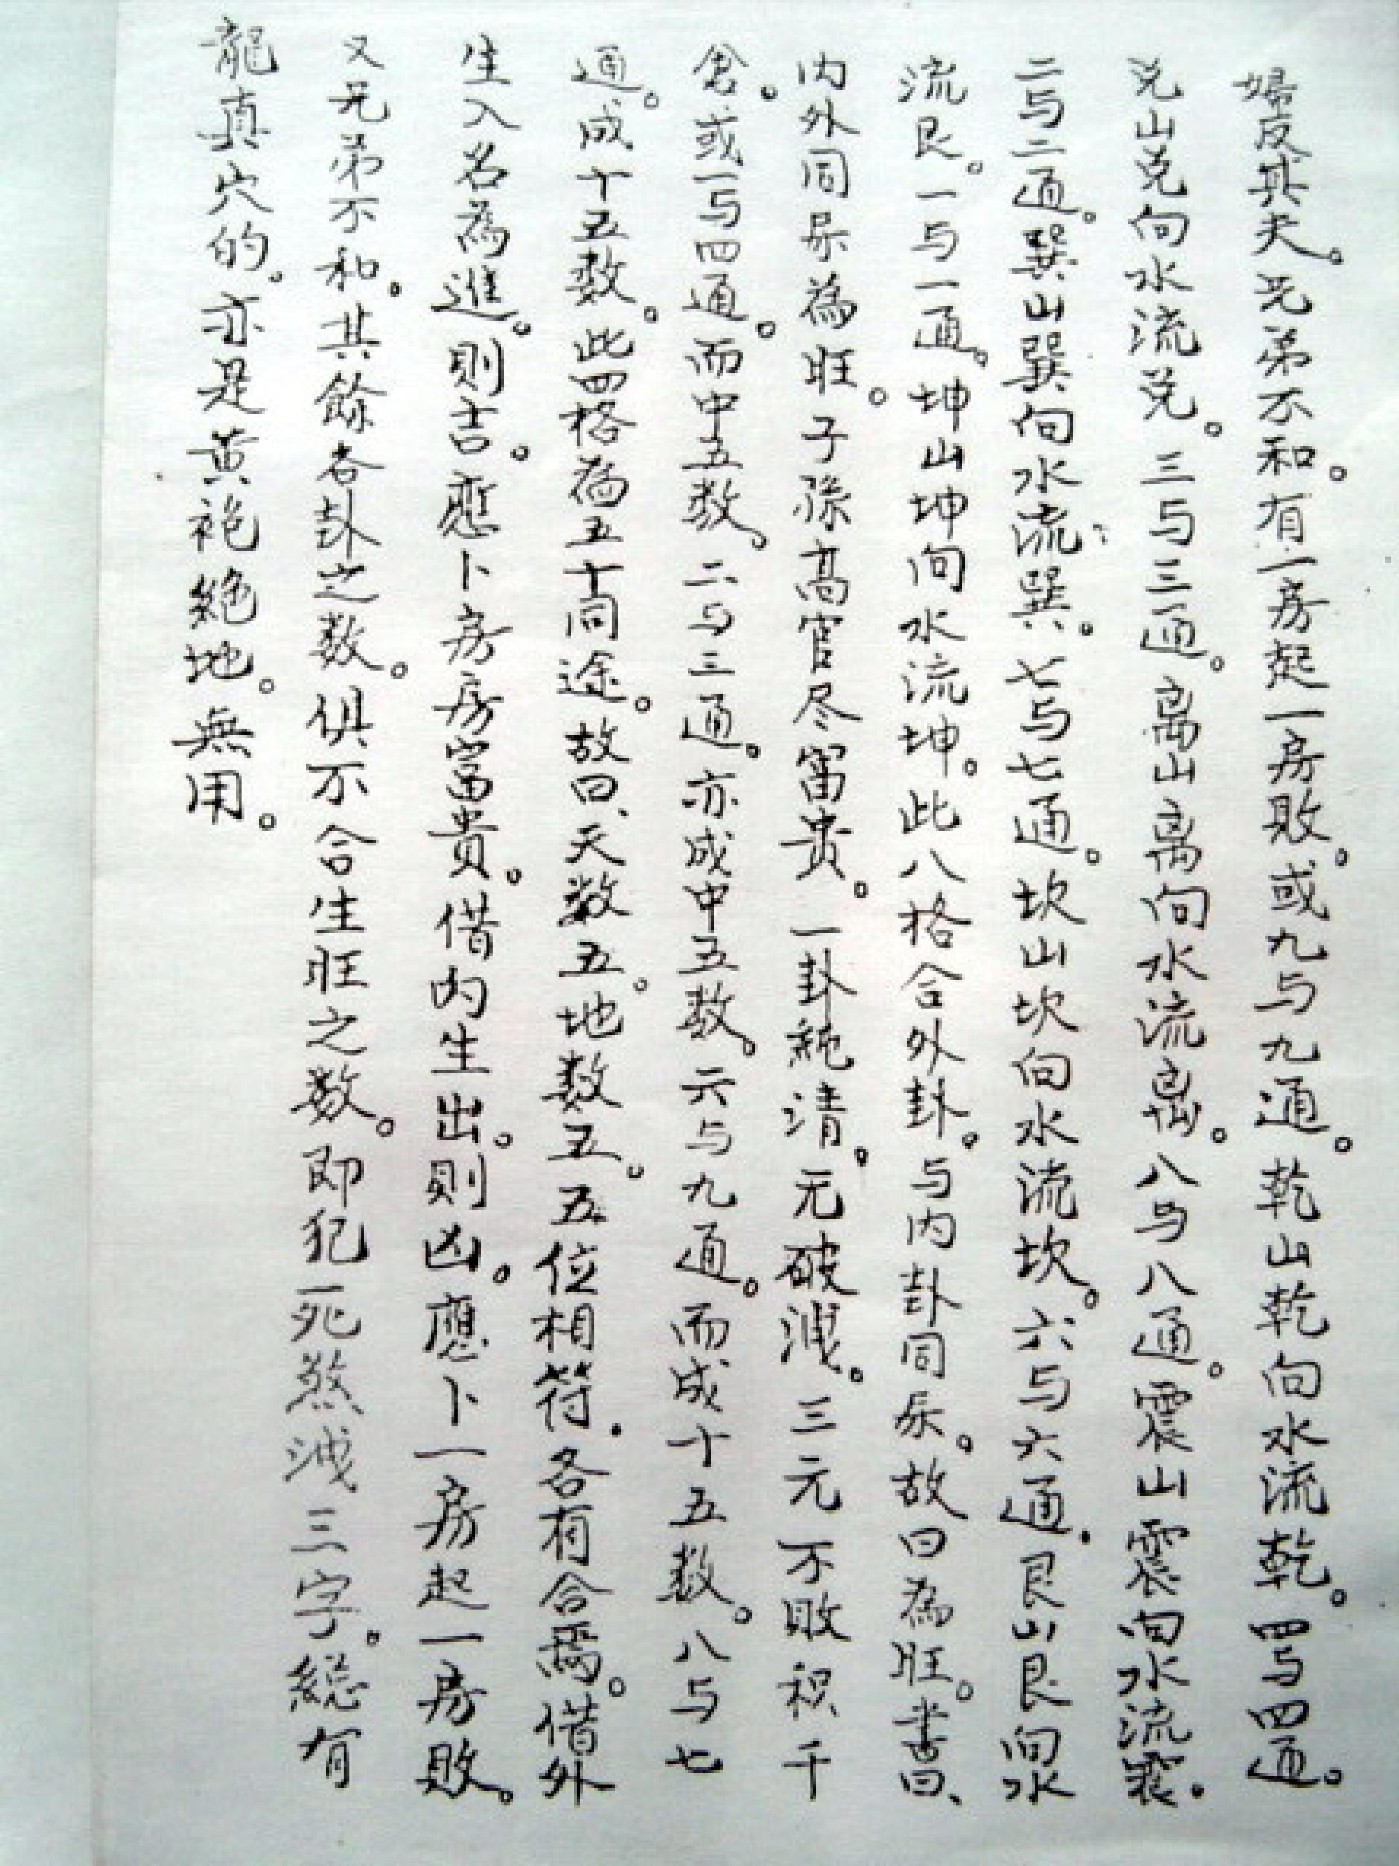 婦反其夫。兄弟不和。有一房起一房敗。或九与九通。乾山乾向水流乾。四与四通。
兑山兑向水流兑。三与三通。离山离向水流离。八与八通。震山震向水流震。
二与二通。巽山巽向水流巽。七与七通。坎山坎向水流坎。六与六通.艮山艮向水
流艮。一与一通。坤山坤向水流坤。此八格合外卦。与内卦同气。故曰為旺。書曰、
内外同气為旺。子孫高官尽富贵。一卦純清。元破洩。三元不敗积千
倉。或一与四通。而中五数。二与三通。亦成中五数。六与九通。而成十五数。八与七
通。成十五数。此四格為五十同途。故曰、天数五。地数五。五位相符.各有合焉。借外
生入名為進。則吉。應卜房房富貴。借内生出。則凶。應卜一房起一房敗。
又兄弟不和。其餘各卦之数。俱不合生旺之数。即犯死煞洩三字。総有
龍真穴的。亦是黄袍絶地。無用。